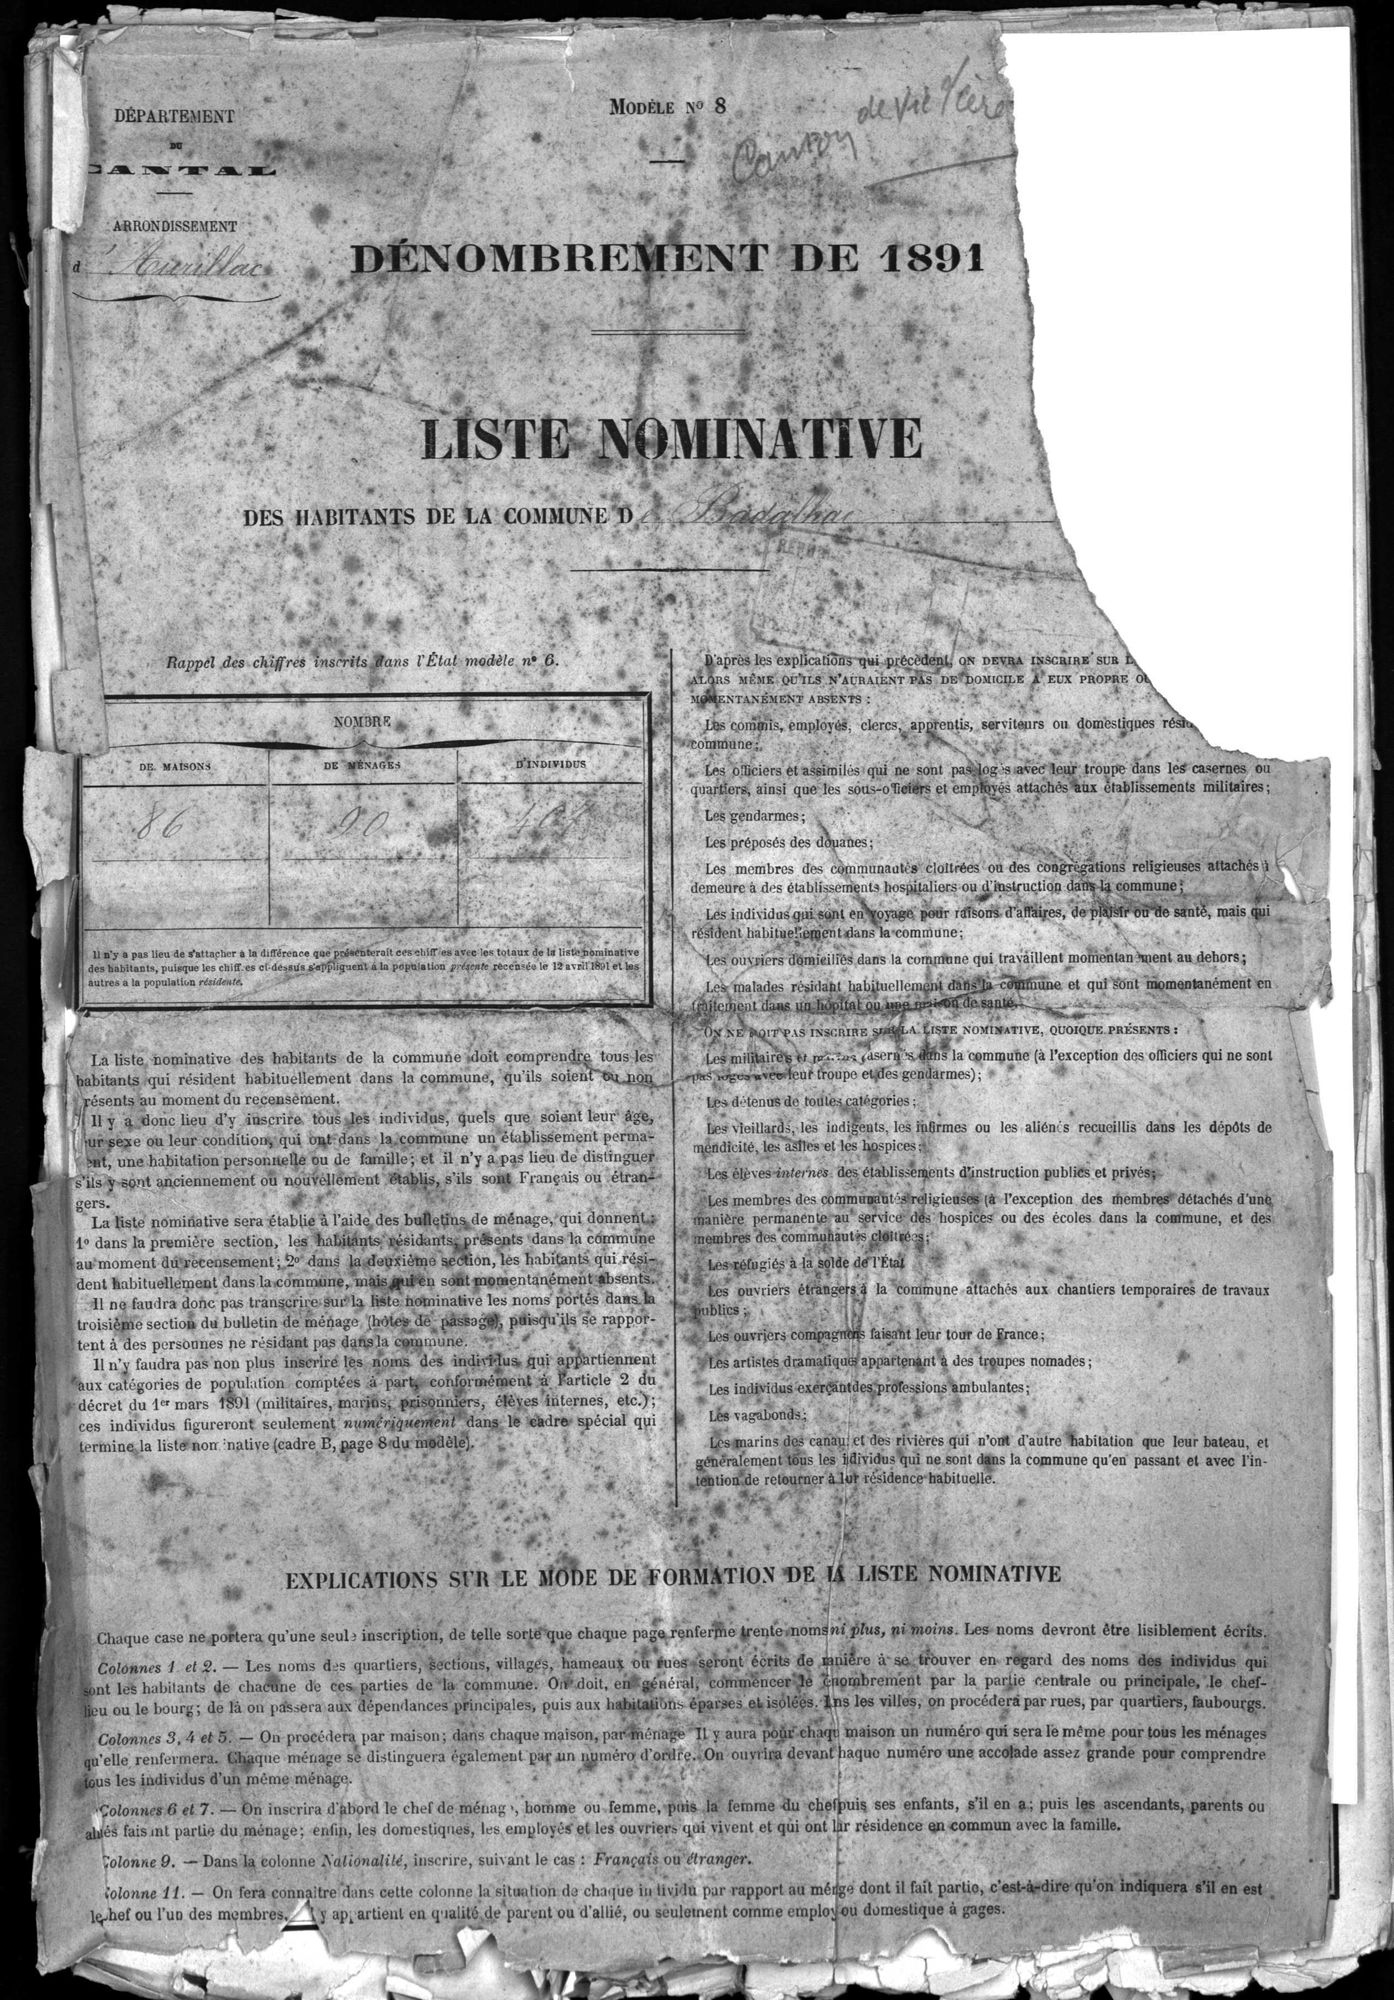 DÉPARTEMENT
DU
CANTAL
ARRONDISSEMENT
d'Aurillac
MODÈLE No 8
Canton de Vic s/Cère
DÉNOMBREMENT DE 1891
LISTE NOMINATIVE
DES HABITANTS DE LA COMMUNE De Badailhac
Rappel des chiffres inscrits dans l'État modèle no 6.
NOMBRE
DE MAISONS DE MÉNAGES D'INDIVIDUS
86 90
Il n'y a pas lieu de s'attacher à la différence que présenterait ces chiff es avec les totaux de la liste nominative
des habitants, puisque les chiff es ci-dessus s'appliquent à la population présente recensée le 12 avril 1891 et les
autres à la population résidente.
La liste nominative des habitants de la commune doit comprendre tous les
habitants qui résident habituellement dans la commune, qu'ils soient ou non
résents au moment du recensement.
Il y a donc lieu d'y inscrire tous les individus, quels que soient leur âge,
ur sexe ou leur condition, qui ont dans la commune un établissement perma-
ent, une habitation personnelle ou de famille; et il n'y a pas lieu de distinguer
s'ils y sont anciennement ou nouvellement établis, s'ils sont Français ou étran-
gers.
La liste nominative sera établie à l'aide des bulletins de ménage, qui donnent :
1o dans la première section, les habitants résidants, présents dans la commune
au moment du recensement; 2o dans la deuxième section, les habitants qui rési-
dent habituellement dans la commune, mais qui en sont momentanément absents.
Il ne faudra donc pas transcrire sur la liste nominative les noms portés dans la
troisième section du bulletin de ménage (hôtes de passage), puisqu'ils se rappor-
tent à des personnes ne résidant pas dans la commune.
Il n'y faudra pas non plus inscrire les noms des individus qui appartiennent
aux catégories de population comptées à part, conformément à l'article 2 du
décret du 1er mars 1891 (militaires, marins, prisonniers, élèves internes, etc.);
ces individus figureront seulement numériquement dans le cadre spécial qui
termine la liste nominative (cadre B, page 8 du modèle).
D'après les explications qui précèdent, ON DEVRA INSCRIRE SUR L
ALORS MÊME QU'ILS N'AURAIENT PAS DE DOMICILE A EUX PROPRE OU
MOMENTANÉMENT ABSENTS :
Les commis, employés, clercs, apprentis, serviteurs ou domestiques résid
commune;
Les officiers et assimilés qui ne sont pas logés avec leur troupe dans les casernes ou
quartiers, ainsi que les sous-officiers et employés attachés aux établissements militaires;
Les gendarmes;
Les préposés des douanes;
Les membres des communautés cloîtrées ou des congrégations religieuses attachés à
demeure à des établissements hospitaliers ou d'instruction dans la commune;
Les individus qui sont en voyage pour raisons d'affaires, de plaisir ou de santé, mais qui
résident habituellement dans la commune;
Les ouvriers domiciliés dans la commune qui travaillent momentanément au dehors;
Les malades résidant habituellement dans la commune et qui sont momentanément en
traitement dans un hôpital ou une maison de santé.
ON NE DOIT PAS INSCRIRE SUR LA LISTE NOMINATIVE, QUOIQUE PRÉSENTS :
Les militaires et marins casernés dans la commune (à l'exception des officiers qui ne sont
pas logés avec leur troupe et des gendarmes);
Les détenus de toutes catégories;
Les vieillards, les indigents, les infirmes ou les aliénés recueillis dans les dépôts de
mendicité, les asiles et les hospices;
Les élèves internes des établissements d'instruction publics et privés;
Les membres des communautés religieuses (à l'exception des membres détachés d'une
manière permanente au service des hospices ou des écoles dans la commune, et des
membres des communautés cloîtrées;
Les réfugiés à la solde de l'État
Les ouvriers étrangers à la commune attachés aux chantiers temporaires de travaux
publics;
Les ouvriers compagnons faisant leur tour de France;
Les artistes dramatiques appartenant à des troupes nomades;
Les individus exerçant des professions ambulantes;
Les vagabonds;
Les marins des canaux et des rivières qui n'ont d'autre habitation que leur bateau, et
généralement tous les individus qui ne sont dans la commune qu'en passant et avec l'in-
tention de retourner à leur résidence habituelle.
EXPLICATIONS SUR LE MODE DE FORMATION DE LA LISTE NOMINATIVE
Chaque case ne portera qu'une seule inscription, de telle sorte que chaque page renferme trente noms ni plus, ni moins. Les noms devront être lisiblement écrits.
Colonnes 1 et 2. — Les noms des quartiers, sections, villages, hameaux ou rues seront écrits de manière à se trouver en regard des noms des individus qui
sont les habitants de chacune de ces parties de la commune. On doit, en général, commencer le dénombrement par la partie centrale ou principale, le chef-
lieu ou le bourg; de là on passera aux dépendances principales, puis aux habitations éparses et isolées. Dans les villes, on procédera par rues, par quartiers, faubourgs.
Colonnes 3, 4 et 5. — On procédera par maison; dans chaque maison, par ménage Il y aura pour chaque maison un numéro qui sera le même pour tous les ménages
qu'elle renfermera. Chaque ménage se distinguera également par un numéro d'ordre. On ouvrira devant chaque numéro une accolade assez grande pour comprendre
tous les individus d'un même ménage.
Colonnes 6 et 7. — On inscrira d'abord le chef de ménage, homme ou femme, puis la femme du chef puis ses enfants, s'il en a; puis les ascendants, parents ou
alliés faisant partie du ménage; enfin, les domestiques, les employés et les ouvriers qui vivent et qui ont leur résidence en commun avec la famille.
Colonne 9. — Dans la colonne Nationalité, inscrire, suivant le cas : Français ou étranger.
Colonne 11. — On fera connaître dans cette colonne la situation de chaque individu par rapport au ménage dont il fait partie, c'est-à-dire qu'on indiquera s'il en est
le chef ou l'un des membres, y appartient en qualité de parent ou d'allié, ou seulement comme employé ou domestique à gages.